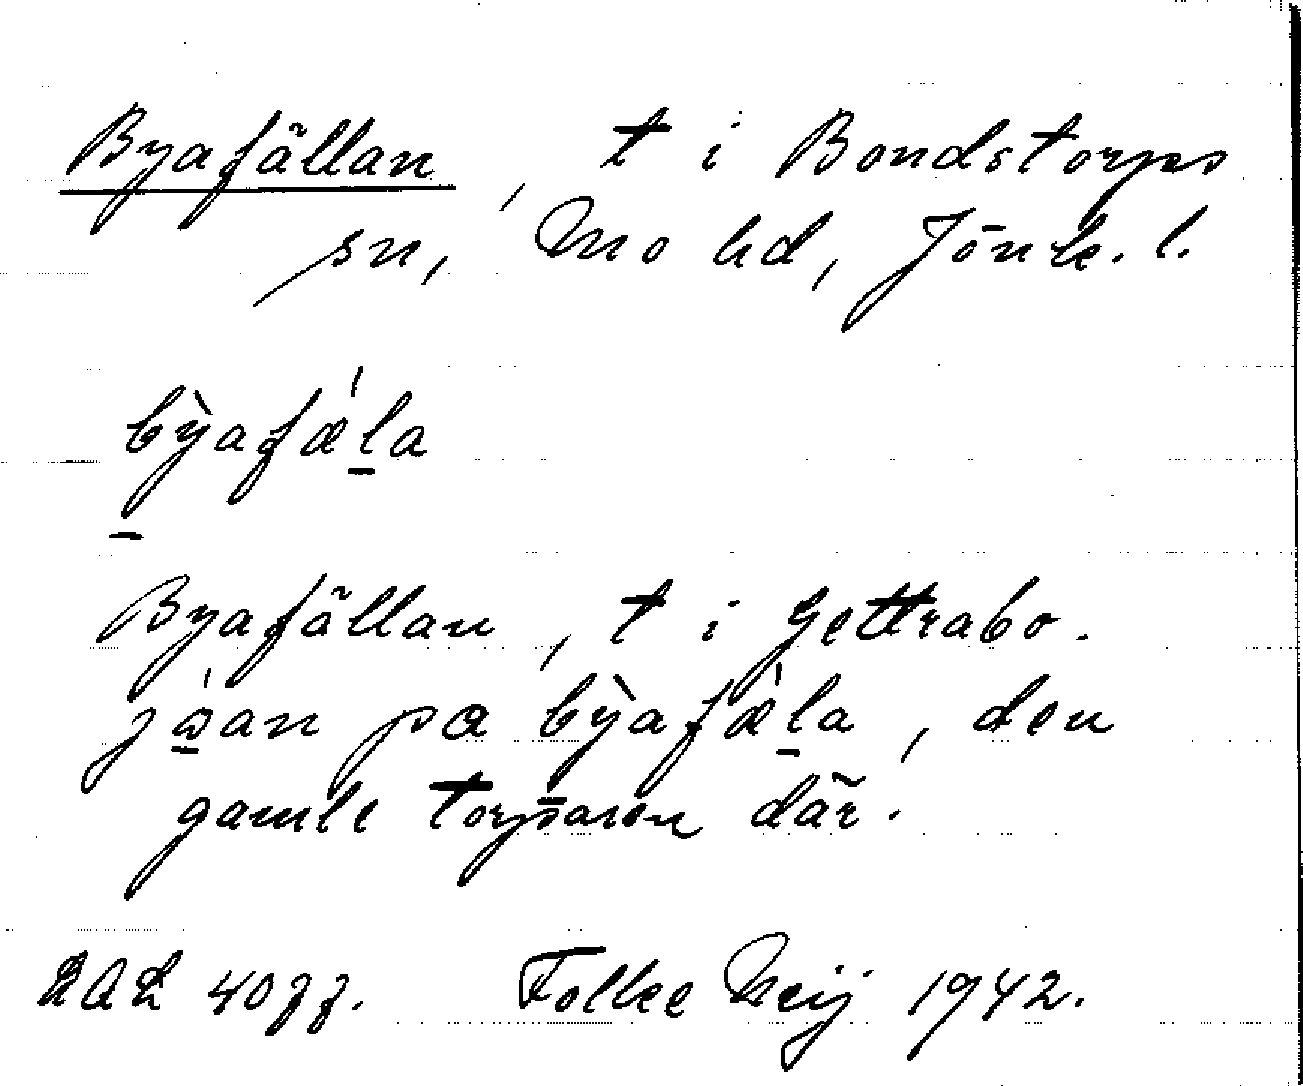 Byafällan, t i Bondstorps
sn, Mo hd, Jönk. l.
bỳafæ̀la
Byafällan, t i Gettrabo.
jòan pa bỳafæ̀la, den
gamle torparen där.
Folke Neij 1942.